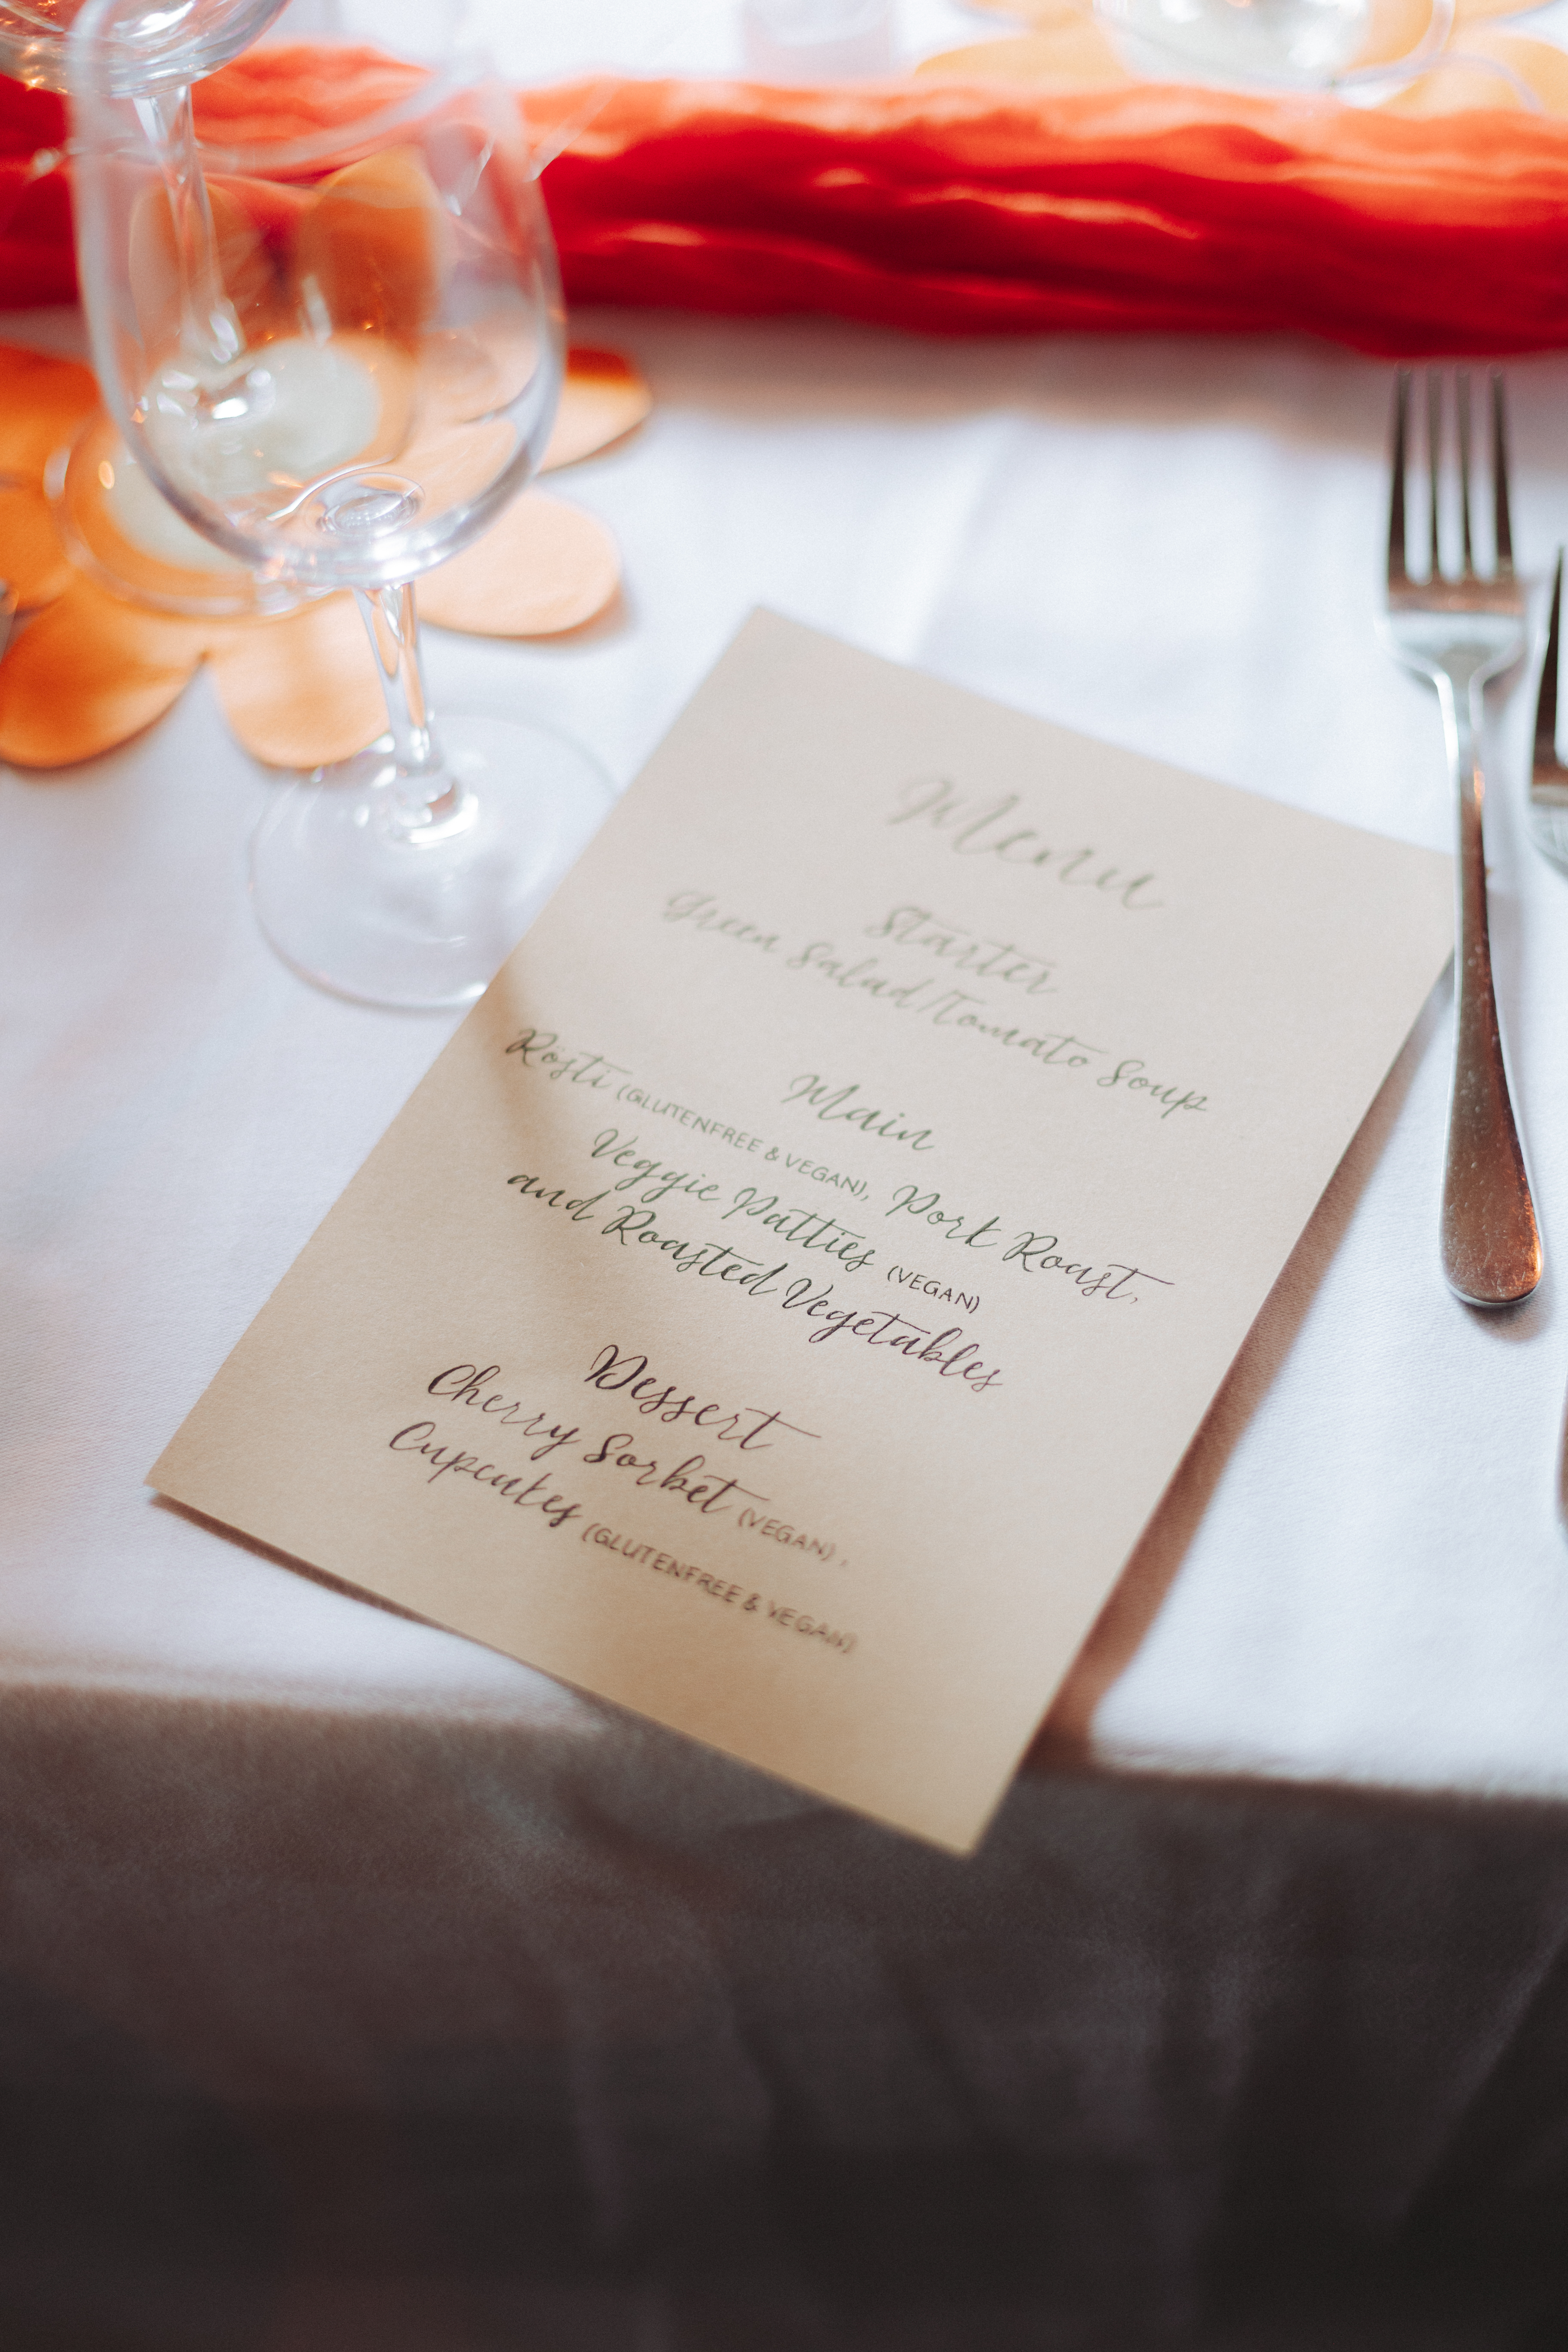 Menu
Starter
Green Salad/Tomato Soup
Main
Rösti (GLUTENFREE & VEGAN), Pork Roast,
Veggie Patties (VEGAN)
and Roasted Vegetables
Dessert
Cherry Sorbet (VEGAN),
Cupcakes (GLUTENFREE & VEGAN)